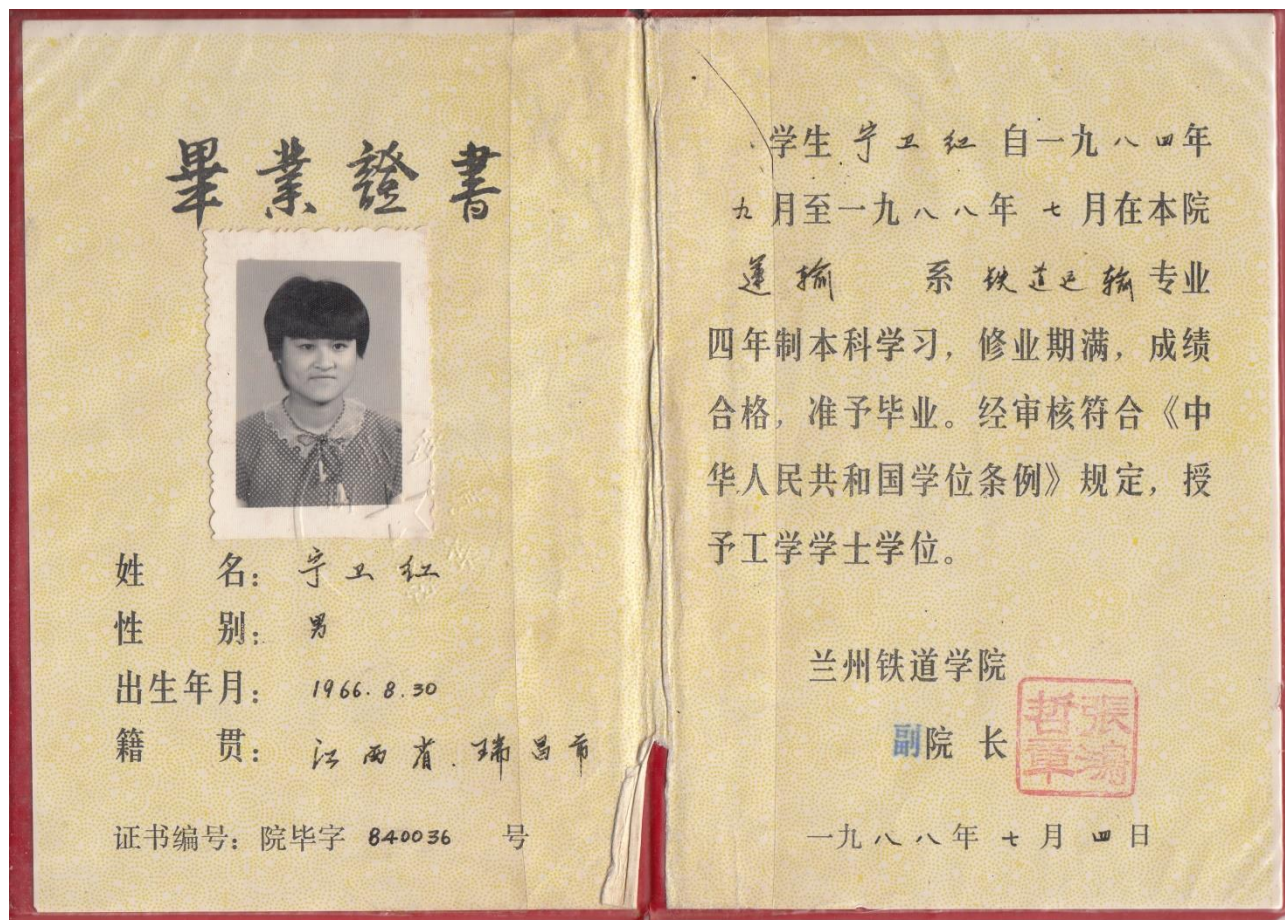 畢業證書
姓名：宁卫红
性别：男
出生年月：1966.8.30
籍贯：江西省.瑞昌市
证书编号：院毕字 840036 号
学生 宁卫红 自一九八四年
九月至一九八八年 七月在本院
運输 系 铁道运输 专业
四年制本科学习，修业期满，成绩
合格，准予毕业。经审核符合《中
华人民共和国学位条例》规定，授
予工学学士学位。
兰州铁道学院
副院长
一九八八年七月四日